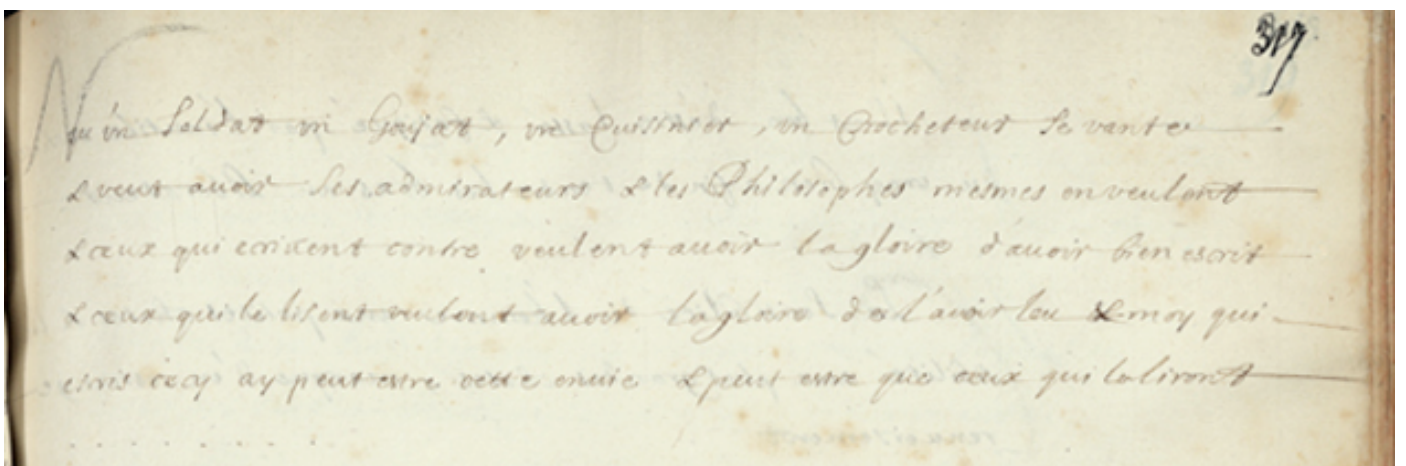 317
qu'un Soldat un Goujat, un Cuisinier, un Crocheteur se vante
& veut avoir ses admirateurs & les Philosophes mesmes en veulent
& ceux qui ecrivent contre veulent avoir la gloire d'avoir bien escrit
& ceux qui le lisent veulent avoir la gloire de l'avoir leu & moy qui
escris cecy ay peut estre cette envie & peut estre que ceux qui le liront
. . . . . . . .